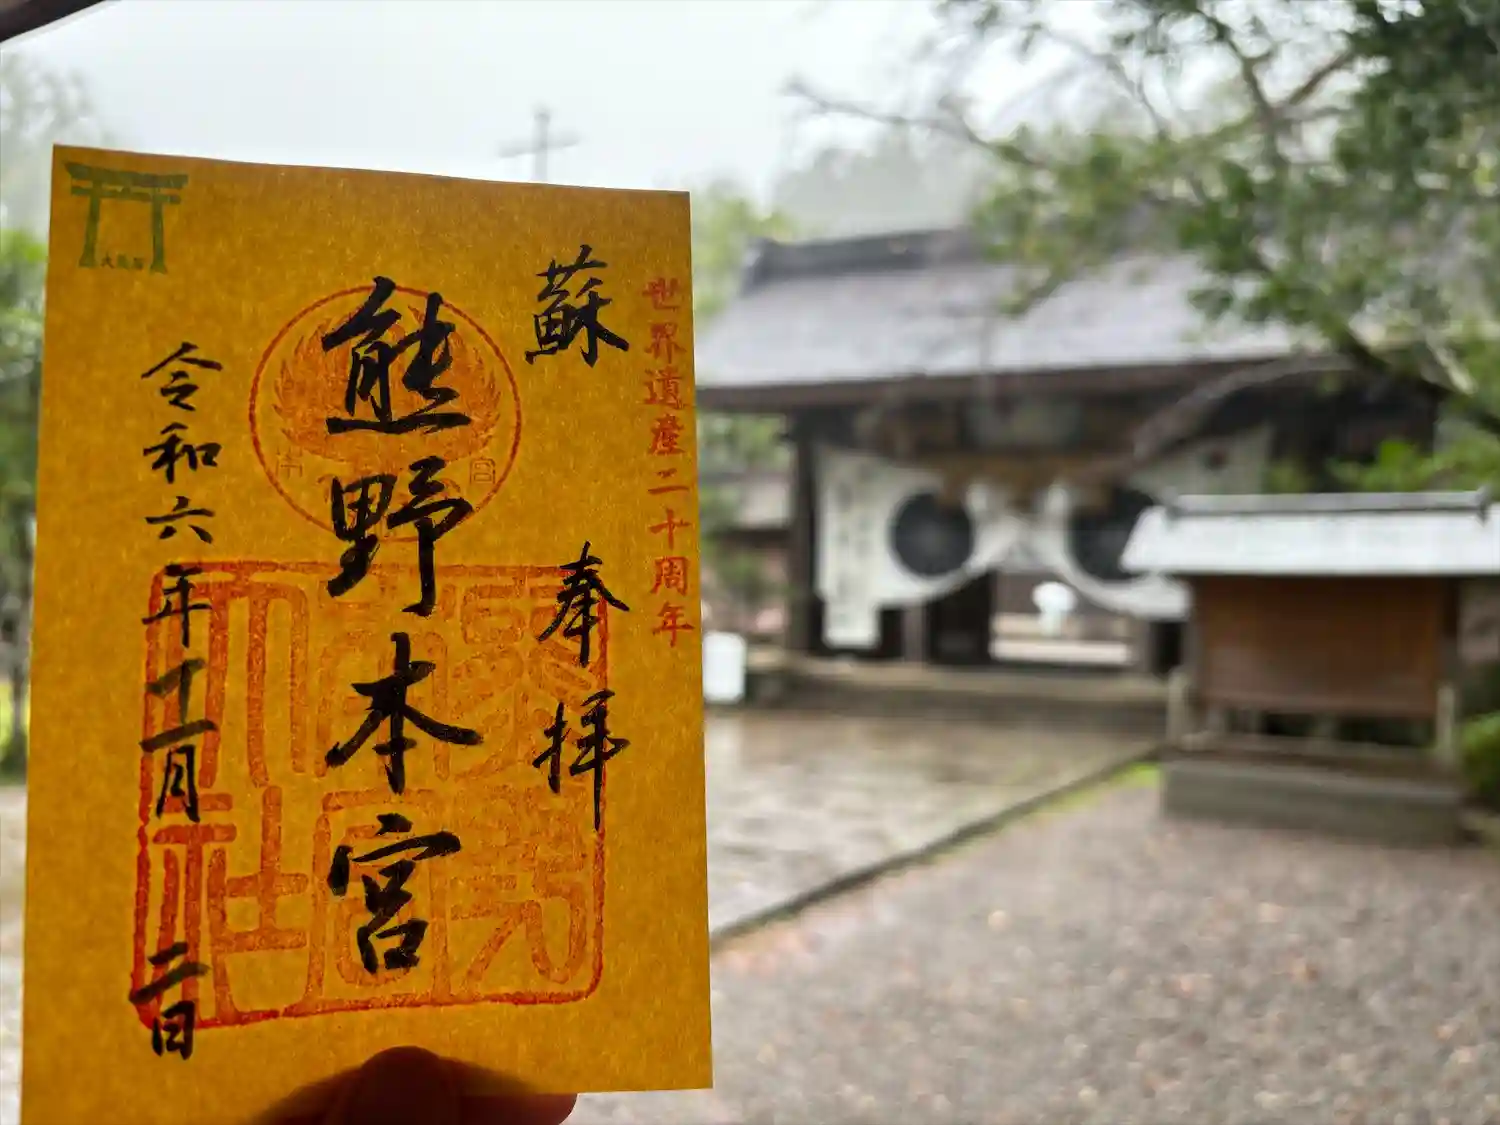 世界遺産二十周年
蘇
奉拝
熊野本宮
令和六年十一月二日
大鳥居